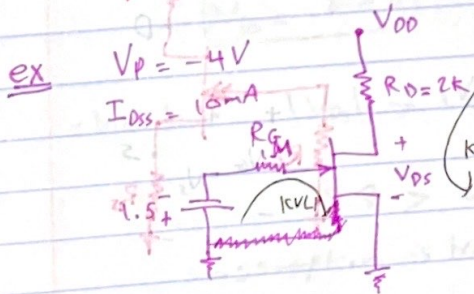 ex
V_P = -4V
I_DSS = 10mA
V_DD
R_D = 2K
R_G
1M
+
V_DS
-
1.5
-
+
KVL1
K